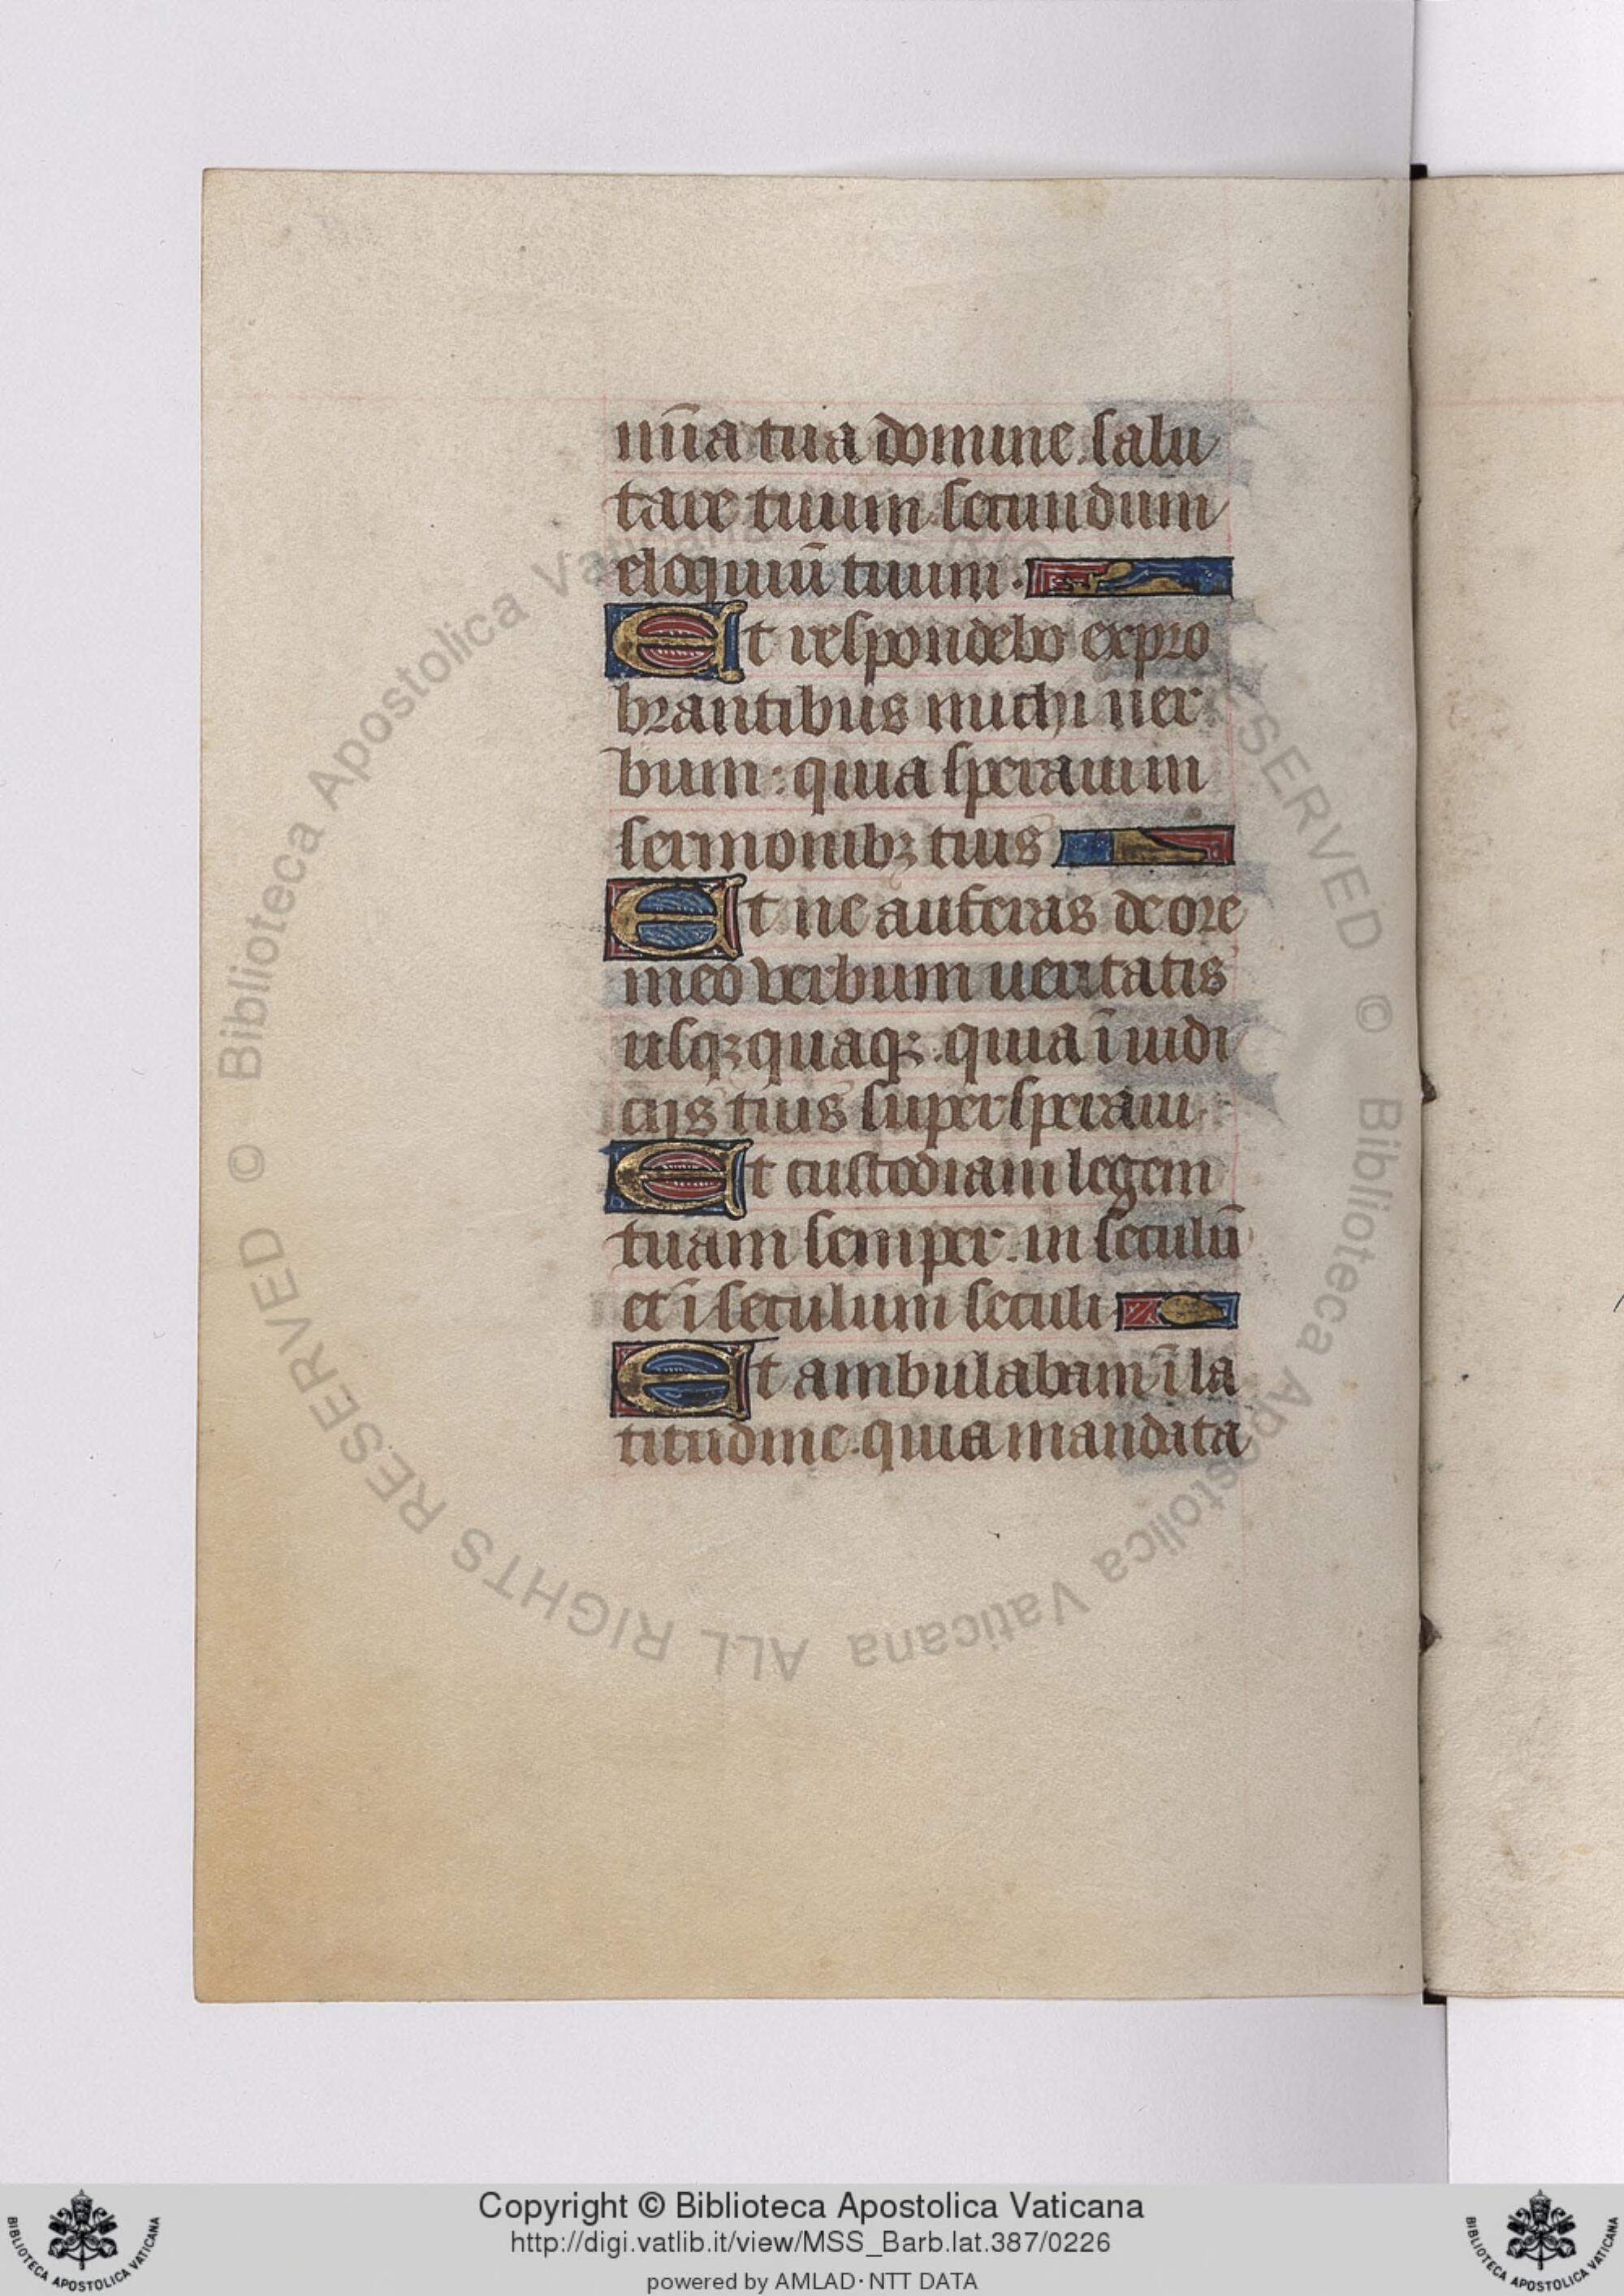 nūa tua domine. salu
tare tuum secundum
eloquiū tuum.
Et respondebo expro
brantibus michi uer
bum: quia speraui in
sermonibꝫ tuis
Et ne auferas de ore
meo verbum ueritatis
usqꝫ quaqꝫ. quia ī iudi
cijs tuis supersperaui.
Et custodiam legem
tuam semper. in seculū
et ī seculum seculi
Et ambulabam ī la
titudine. quia mandata
© Biblioteca Apostolica Vaticana ALL RIGHTS RESERVED © Biblioteca Apostolica Vaticana
Copyright © Biblioteca Apostolica Vaticana
http://digi.vatlib.it/view/MSS_Barb.lat.387/0226
powered by AMLAD·NTT DATA
BIBLIOTECA APOSTOLICA VATICANA
BIBLIOTECA APOSTOLICA VATICANA